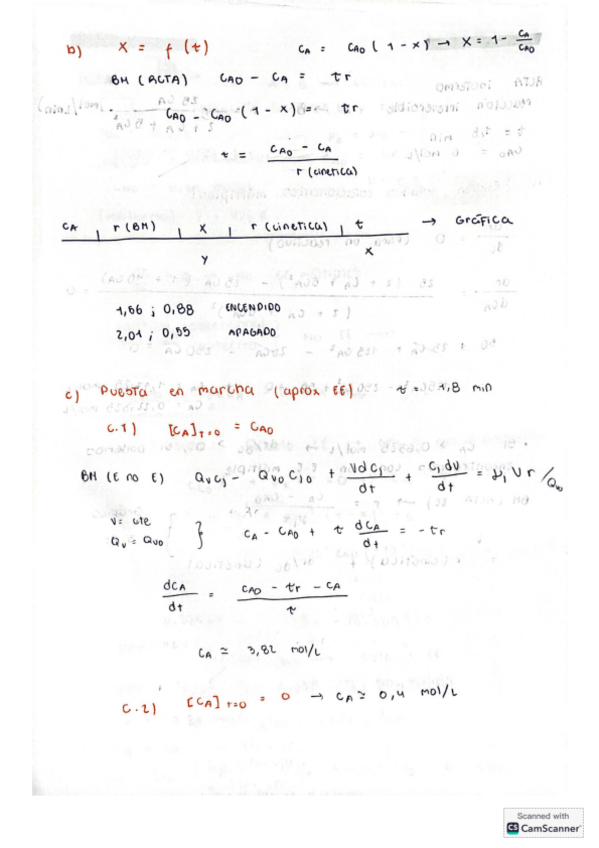 b) X = f (t) CA = CAO (1-x) → X = 1 - CA/CAO
BM (RCTA) CAO - CA = τr
CAO - CAO (1-x) = τr
τ = (CAO - CA) / r (cinetica)
CA | r (BM) | X | r (cinetica) | τ → GRÁFICA
y x
1,66 ; 0,88 ENCENDIDO
2,01 ; 0,55 APAGADO
c) Puesta en marcha (aprox EE) τ = 1,8 min
C.1) [CA]T=0 = CAO
BM (E no E) Qvcj - Qvo Cjo + Vdcj/dt + Cjdv/dt = νj V r / Qvo
V = cte
Qv = Qvo } CA - CAO + τ dCA/dt = - τr
dCA/dt = (CAO - τr - CA) / τ
CA ≃ 3,82 mol/L
C.2) [CA]T=0 = 0 → CA ≃ 0,4 mol/L
Scanned with
CS CamScanner